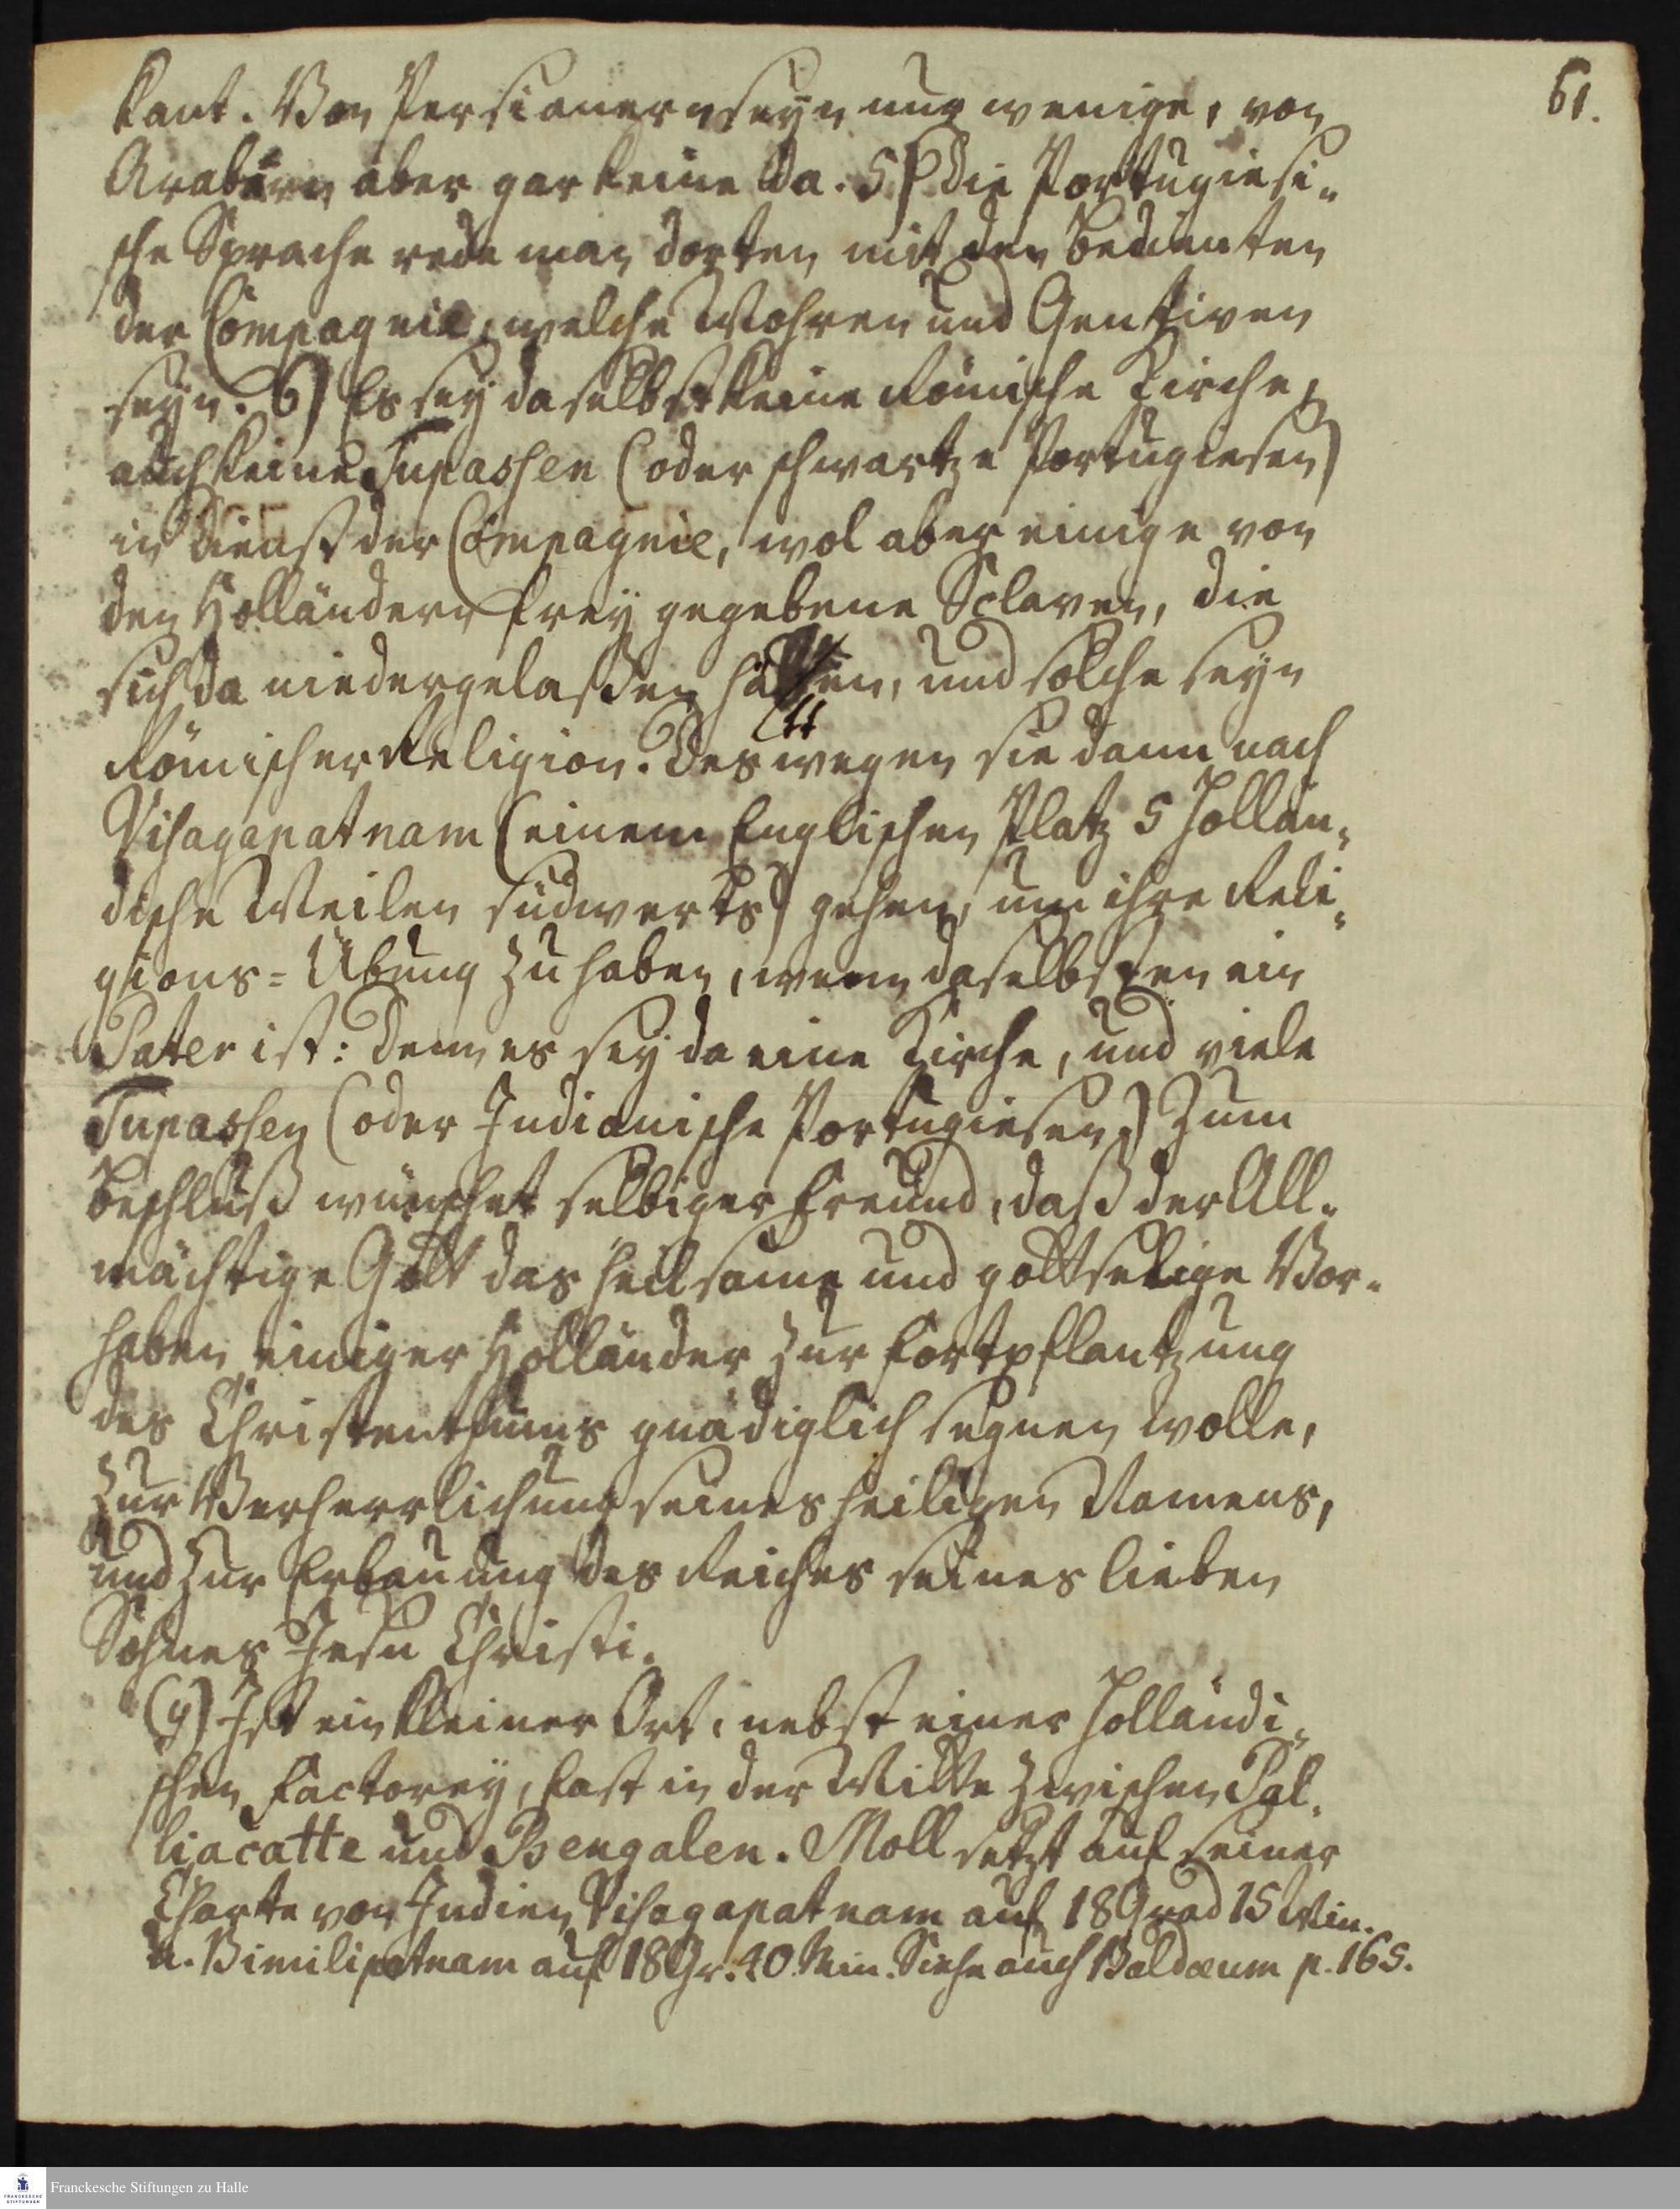 61.
kant. Von Persianern seyn nur wenige, von
Arabern aber gar keine da. 5) Die Portugiesi-
sche Sprache rede man dorten mit den Bedienten
der Compagnie, welche Mohren und Gentiven
seyn. 6) Es sey daselbst keine Römische Kirche,
auch keine Tupassen (oder schwartze Portugiesen)
in Dienst der Compagnie, wol aber einige von
den Holländern frey gegebene Sclaven, die
sich da niedergelaßen hätten, und solche seyn
tt
Römischer Religion. Deswegen sie dann nach
Visagapatnam (einem Englischen Platz 5 Hollän-
dische Meilen südwerts) gehen, um ihre Reli-
gions-Übung zu haben, wenn daselbsten ein
Pater ist: denn es sey da eine Kirche, und viele
Tupassen (oder Indianische Portugiesen.) Zum
Beschluß wünschet selbiger Freund, daß der All-
mächtige Gott das heilsame und gottselige Vor-
haben einiger Holländer zur Fortpflantzung
des Christenthums gnädiglich segnen wolle,
zur Verherrlichung seines heiligen Namens,
und zur Erbauung des Reiches seines lieben
Sohnes Jesu Christi.
(y) Ist ein kleiner Ort, nebst einer Holländi-
schen Factorey, fast in der Mitte zwischen Pal-
liacatte und Bengalen. Moll setzt auf seiner
Charte von Indien Visagapatnam auf 18 Grad 15 Min.
u. Bimilipatnam auf 18 Gr. 40 Min. Siehe auch Baldæum p. 165.
Franckesche Stiftungen zu Halle